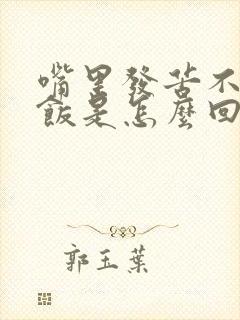 嘴里發苦不
飯是怎麼回
郭玉葉